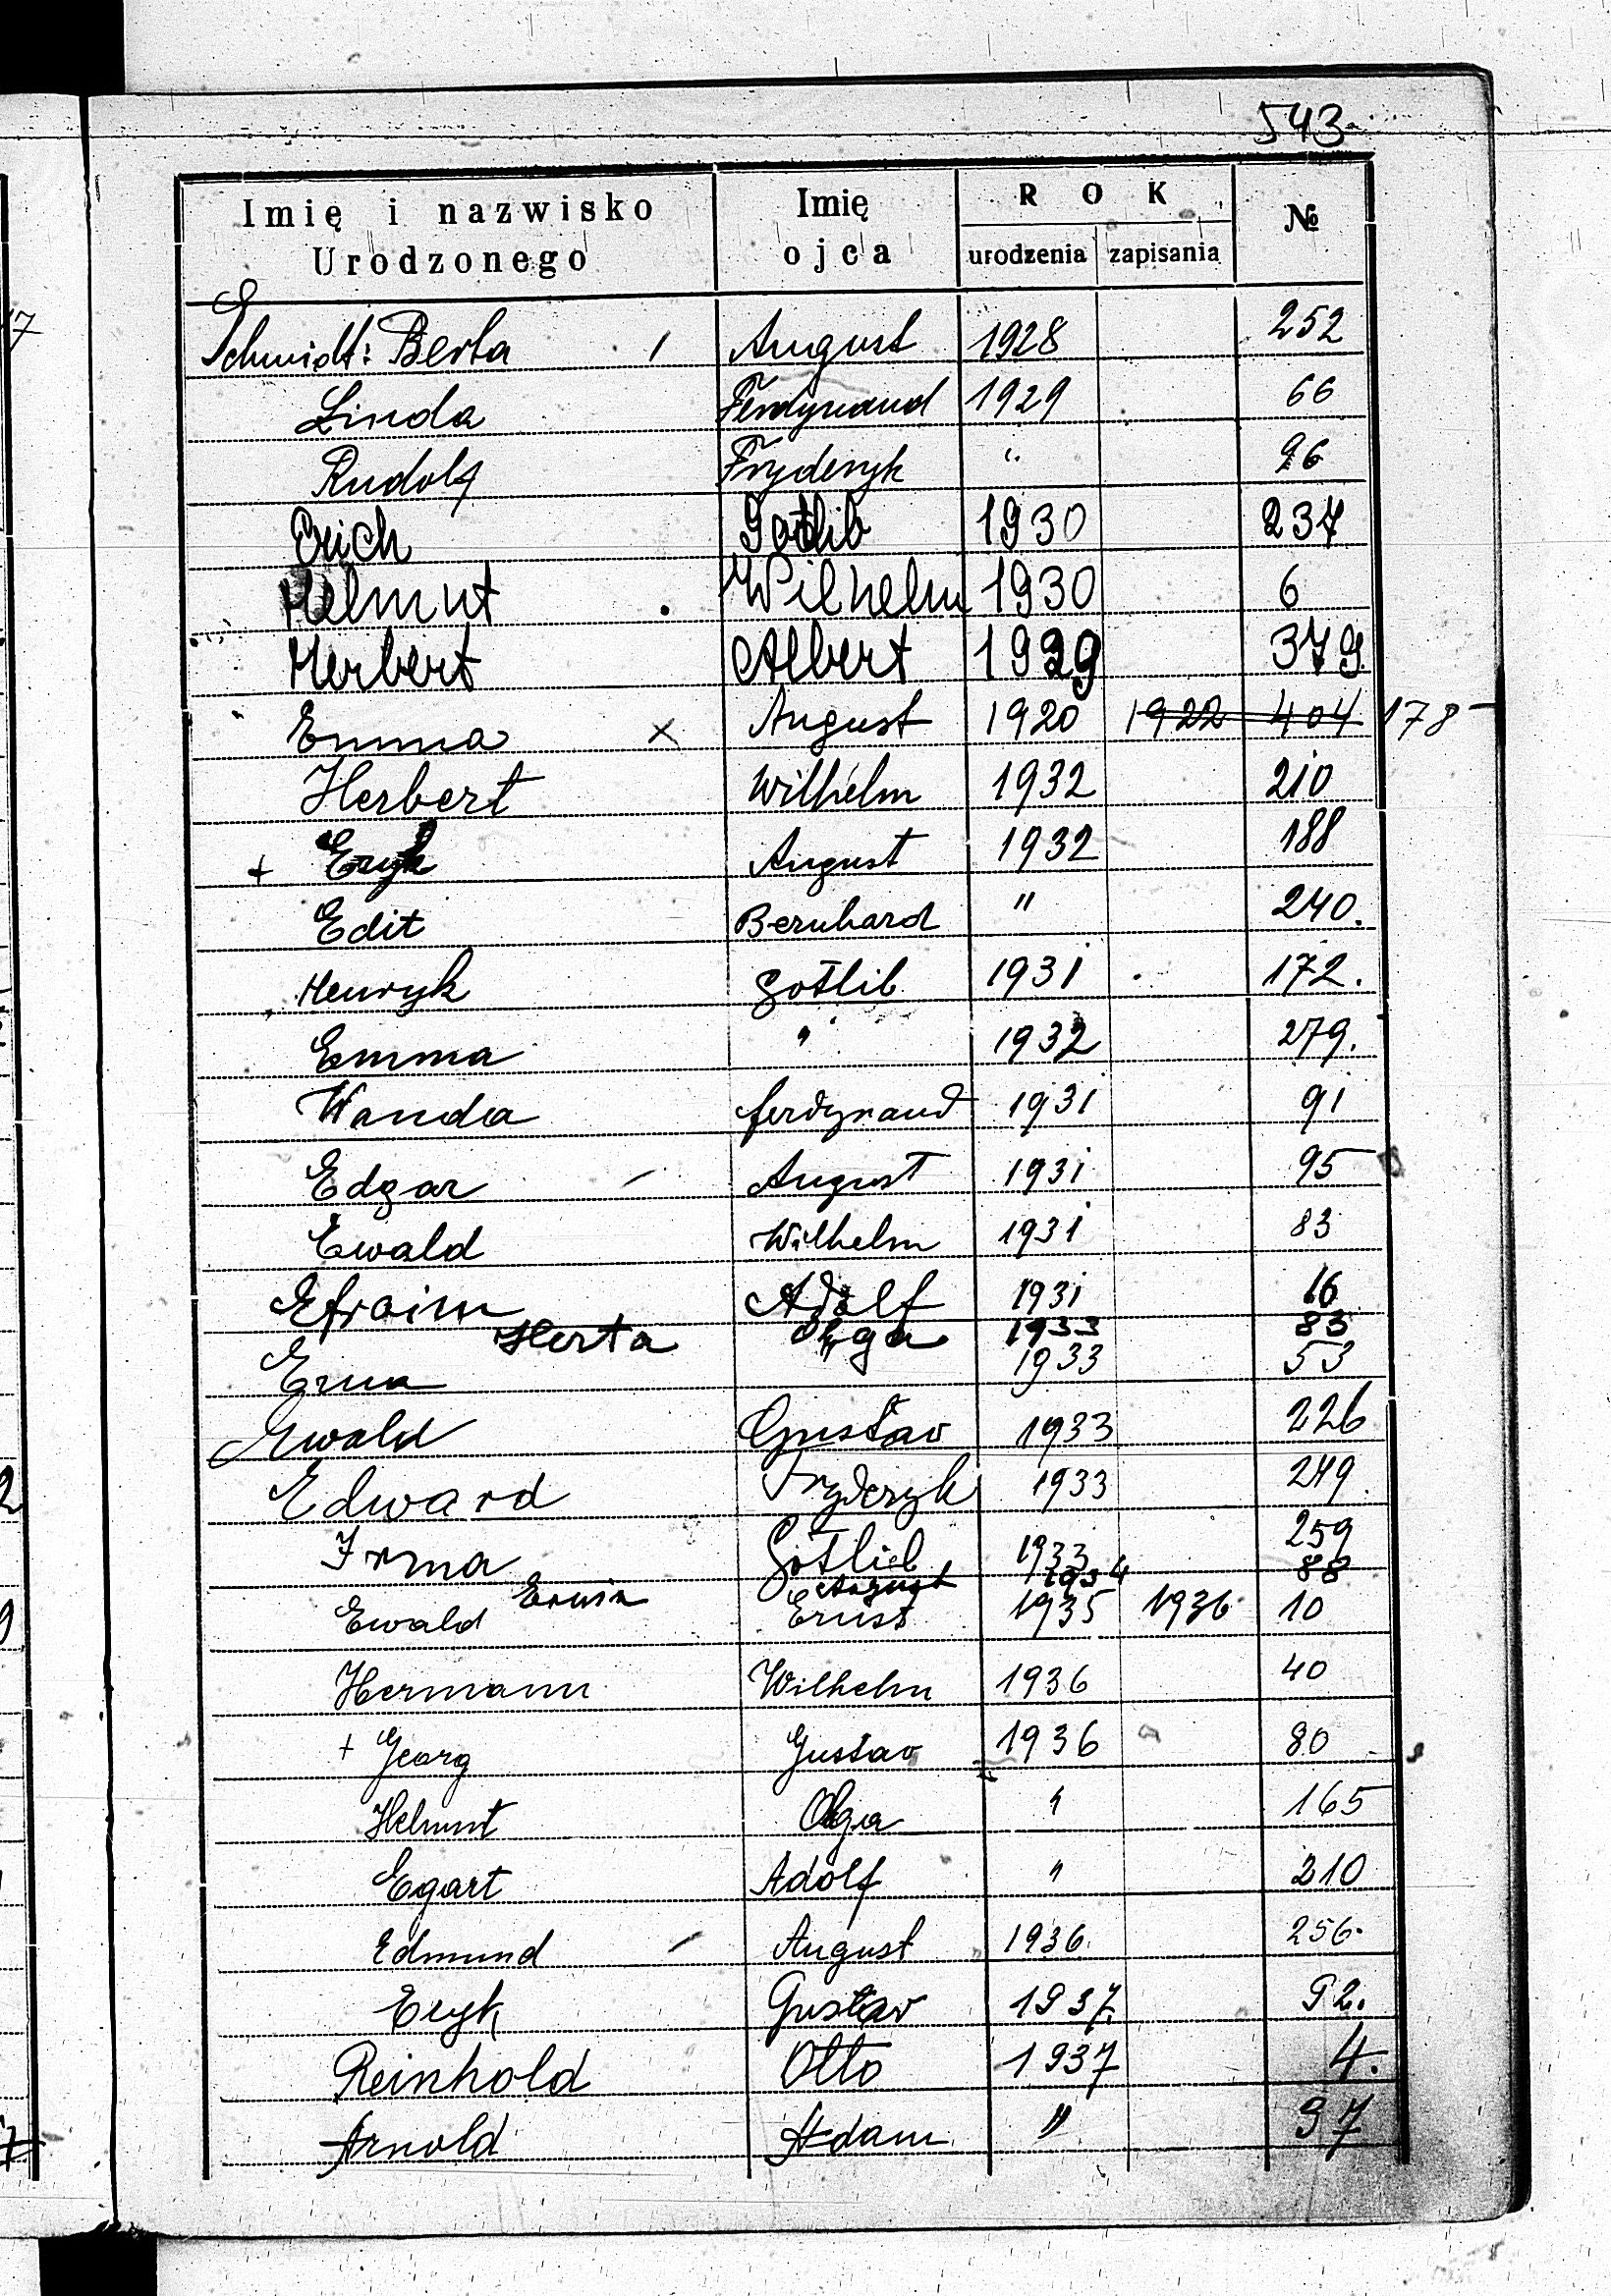 543
Imię i nazwisko Urodzonego Imię ojca ROK urodzenia zapisania №
Schmidt: Berta / August 1928 252
Linda Ferdynand 1929 66
Rudolf Fryderyk " 96
Erich Gotlib 1930 237
Helmut . Wilhelm 1930 6
Herbert Albert 1929 379.
Emma x August 1920 1922 404 178
Herbert Wilhelm 1932 210
+ Eryk August 1932 188
Edit Bernhard " 240.
Henryk Gotlib 1931 172.
Emma " 1932 279.
Wanda ferdynand 1931 91
Edgar - August 1931 95
Ewald Wilhelm 1931 83
Efraim Adolf 1931 16
Herta Olga 1933 83
Erna 1933 53
Ewald Gustav 1933 226
Edward Fryderyk 1933 249.
Irma Gotlieb 1933 259
Erwin August 1934 88
Ewald Ernst 1935 1936 10
Hermann Wilhelm 1936 40
+ Georg Gustav 1936 80
Helmut Olga " 165
Egart Adolf " 210
Edmund - August 1936. 256.
Eryk Gustav 1937. 92.
Reinhold Otto 1937 4.
Arnold Adam " 97